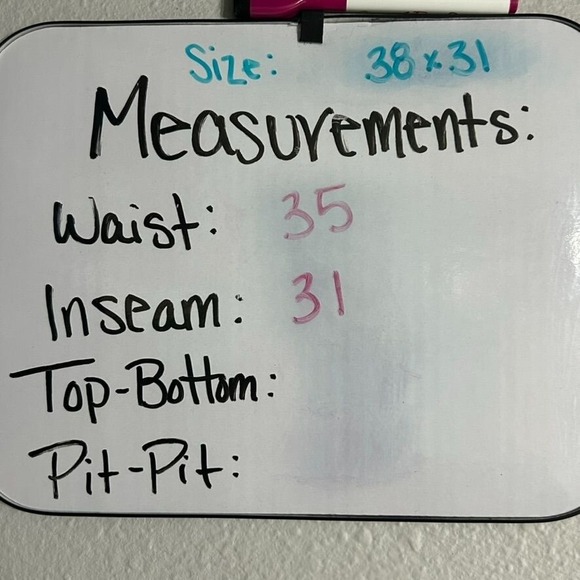 Size: 38 x 31
Measurements:
Waist: 35
Inseam: 31
Top-Bottom:
Pit-Pit: